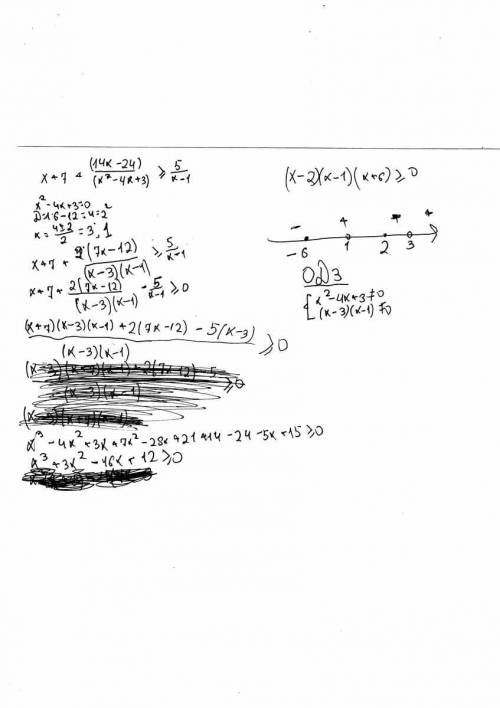 x+7+(14x-24)/(x²-4x+3)≥5/(x-1)
x²-4x+3=0
D=16-12=4=2²
x=(4±2)/2=3;1
x+7+2(7x-12)/((x-3)(x-1))≥5/(x-1)
x+7+2(7x-12)/((x-3)(x-1))-5/(x-1)≥0
((x+7)(x-3)(x-1)+2(7x-12)-5(x-3))/((x-3)(x-1))≥0
x³-4x²+3x+7x²-28x+21+14-24-5x+15≥0
x³+3x²-16x+12≥0
(x-2)(x-1)(x+6)≥0
- + + +
-6 1 2 3
ОДЗ
{x²-4x+3≠0
(x-3)(x-1)≠0